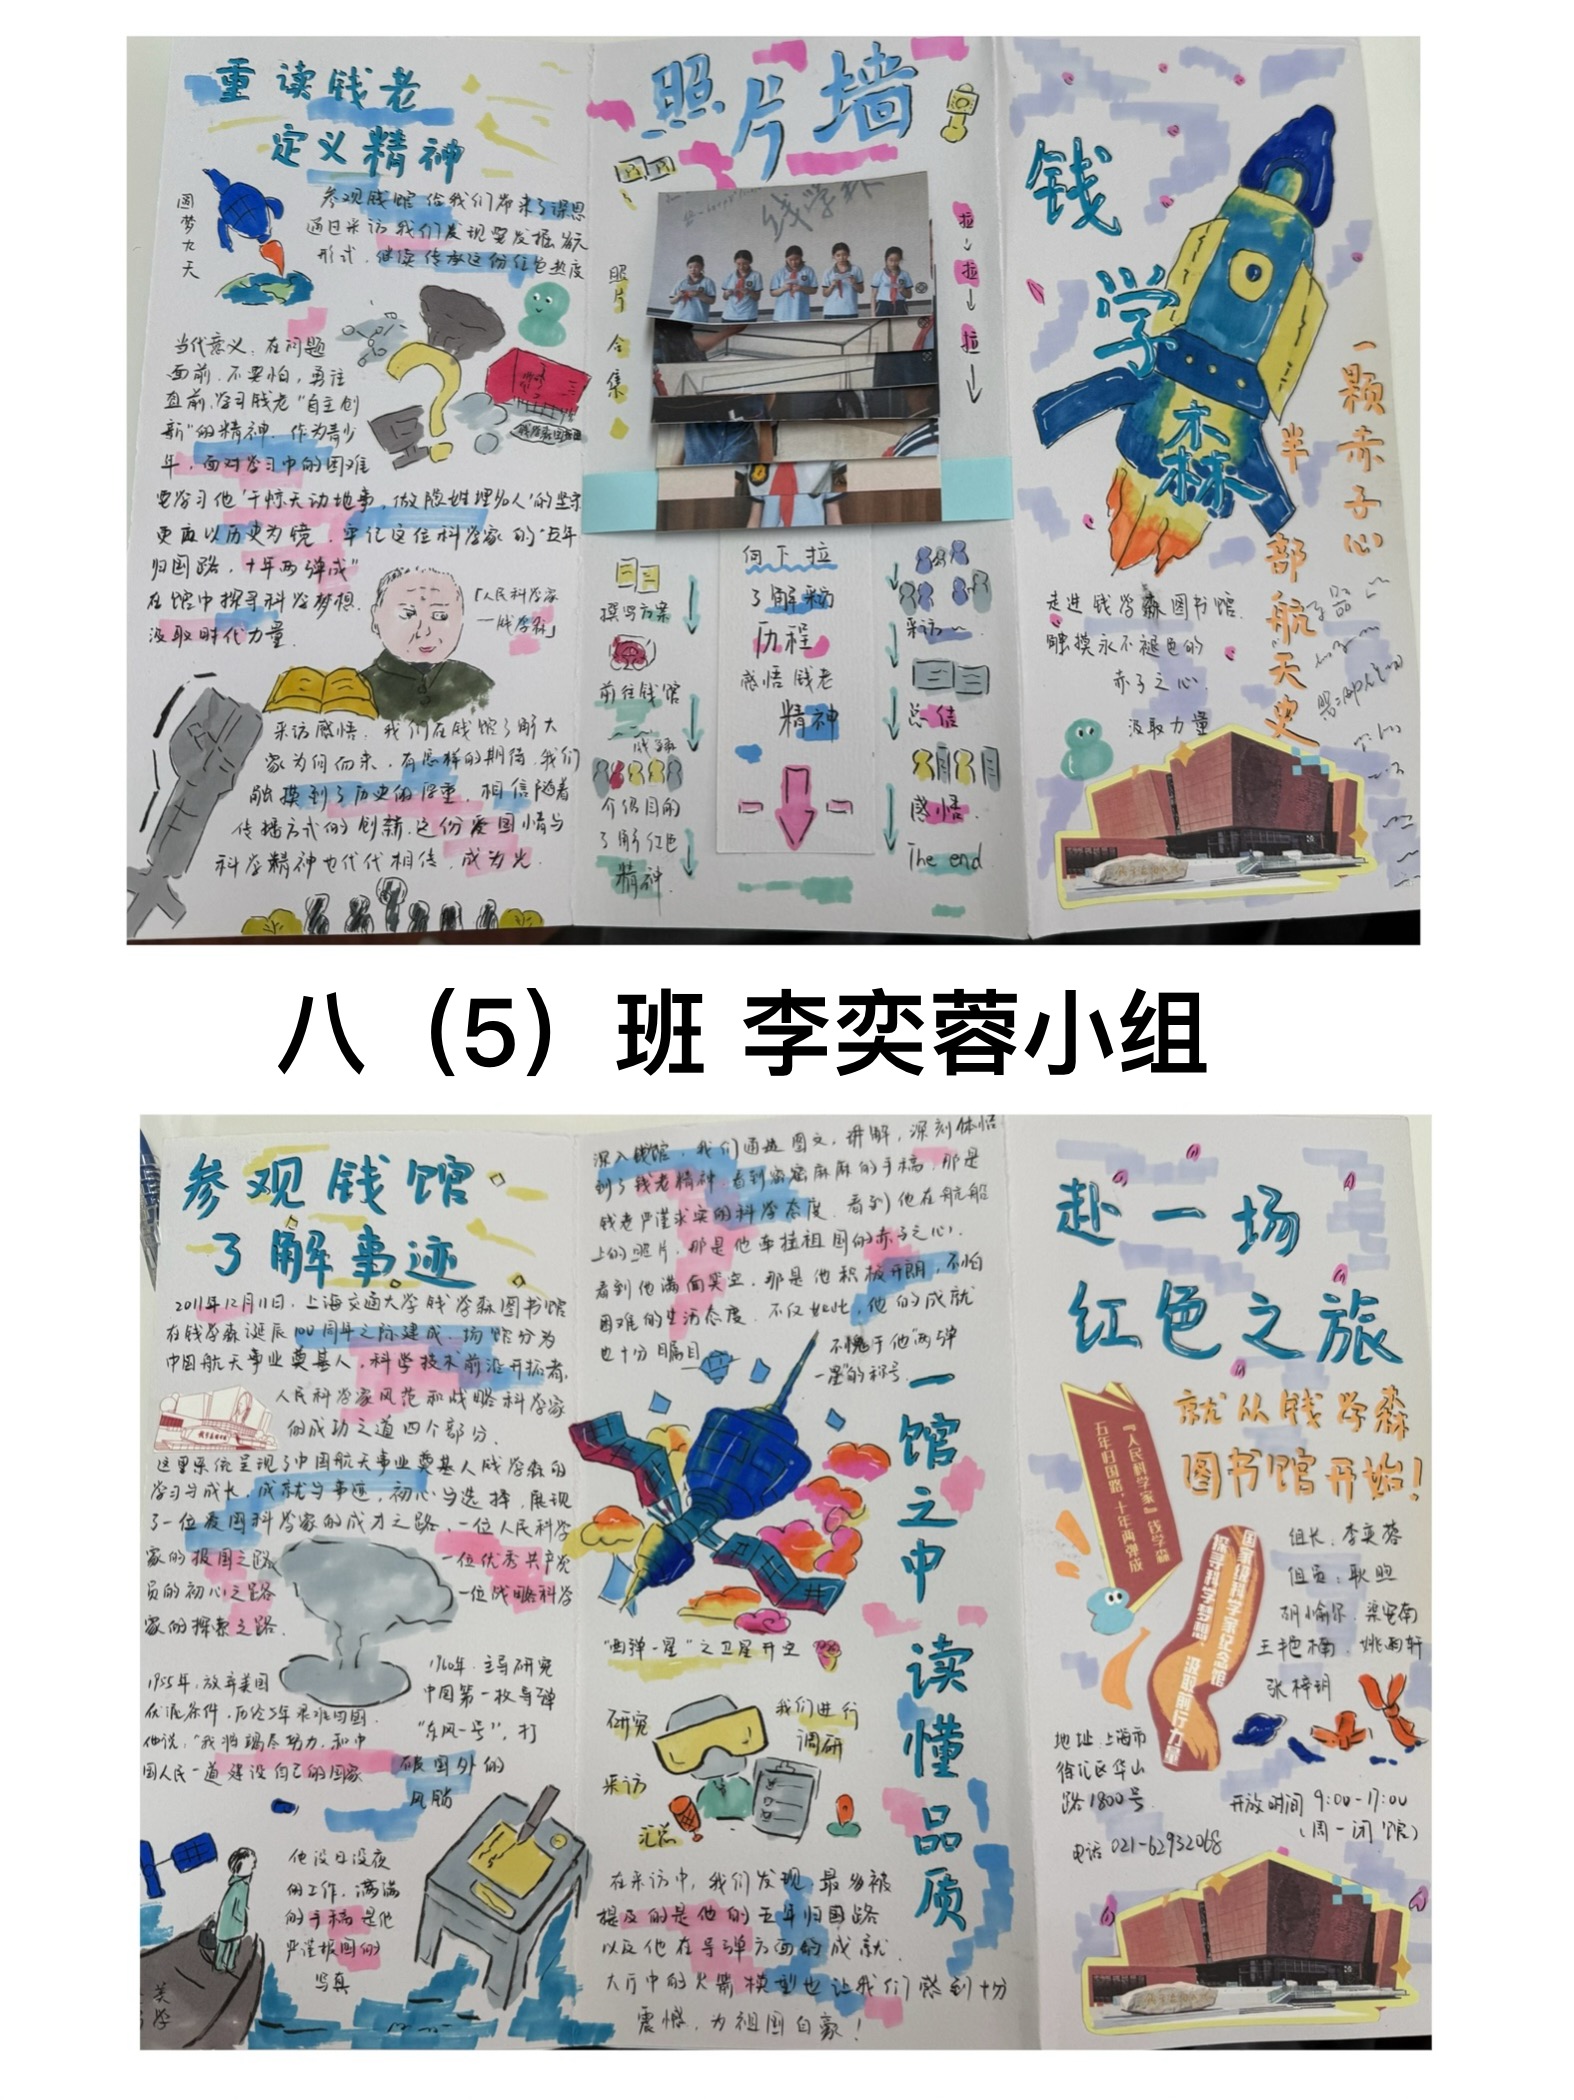 重读钱老
定义精神
圆梦九天
参观钱馆给我们带来了深思
通过采访我们发现要发掘
形式，继续传承这份红色热度
当代意义：在问题
面前，不要怕，勇往
直前，学习钱老“自主创
新”的精神，作为青少
年，面对学习中的困难
要学习他‘干惊天动地事，做隐姓埋名人’的坚守
更再以历史为镜，牢记这位科学家的“五年
归国路，十年两弹成”
在馆中探寻科学梦想，
汲取时代力量.
「人民科学家
—钱学森」
采访感悟：我们在钱馆了解大
家为何而来，有怎样的期待，我们
触摸到了历史的厚重，相信随着
传播方式的创新，这份爱国情与
科学精神也代代相传，成为光.
照片墙
照片合集
拉
拉
拉
撰写方案
前往钱馆
介绍目的
了解红色
精神.
向下拉
了解采访
历程
感悟钱老
精神
采访
总结
感悟.
The end
钱学森
一颗赤子心
半部航天史
走进钱学森图书馆.
触摸永不褪色的
赤子之心.
汲取力量
八（5）班 李奕蓉小组
参观钱馆
了解事迹
2011年12月11日，上海交通大学钱学森图书馆
在钱学森诞辰100周年之际建成，场馆分为
中国航天事业奠基人，科学技术前沿开拓者，
人民科学家风范和战略科学家
的成功之道四个部分.
这里系统呈现了中国航天事业奠基人钱学森的
学习与成长，成就与事迹，初心与选择，展现
了一位爱国科学家的成才之路，一位人民科学
家的报国之路
一位优秀共产党
员的初心之路
一位战略科学
家的探索之路.
1955年，放弃美国
优渥条件，历经5年艰难回国.
他说，“我将竭尽努力，和中
国人民一道建设自己的国家
1960年，主导研究
中国第一枚导弹
“东风一号”，打
破国外的
风脑
他没日没夜
的工作，满满
的手稿是他
严谨报国的
写真
深入钱馆，我们通过图文，讲解，深刻体悟
到了钱老精神，看到密密麻麻的手稿，那是
钱老严谨求实的科学态度，看到他在航船
上的照片，那是他牵挂祖国的赤子之心.
看到他满面笑容，那是他积极开朗，不怕
困难的生活态度，不仅如此，他的成就
也十分瞩目
不愧于他“两弹
一星”的称号.
一馆之中 读懂品质
“两弹一星”之卫星开史
研究
我们进行
调研
采访
汇总
在采访中，我们发现，最多被
提及的是他的五年归国路
以及他在导弹方面的成就.
大厅中的火箭模型也让我们感到十分
震憾，为祖国自豪！
赴一场
红色之旅
就从钱学森
图书馆开始！
『人民科学家』钱学森
五年归国路，十年两弹成
国家级科学家纪念馆
探寻科学梦想，汲取前行力量
组长：李奕蓉
组员：耿煦
王艳楠
张梓玥
地址：上海市
徐汇区华山
路1800号.
开放时间 9:00-17:00
（周一闭馆）
电话 021-62932068